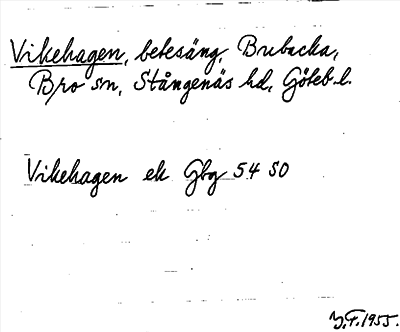 Vikehagen, betesäng, Brubacka,
Bro sn, Stångenäs hd, Göteb. l.
Vikehagen ek Gbg 54 SO
Y.F. 1955.